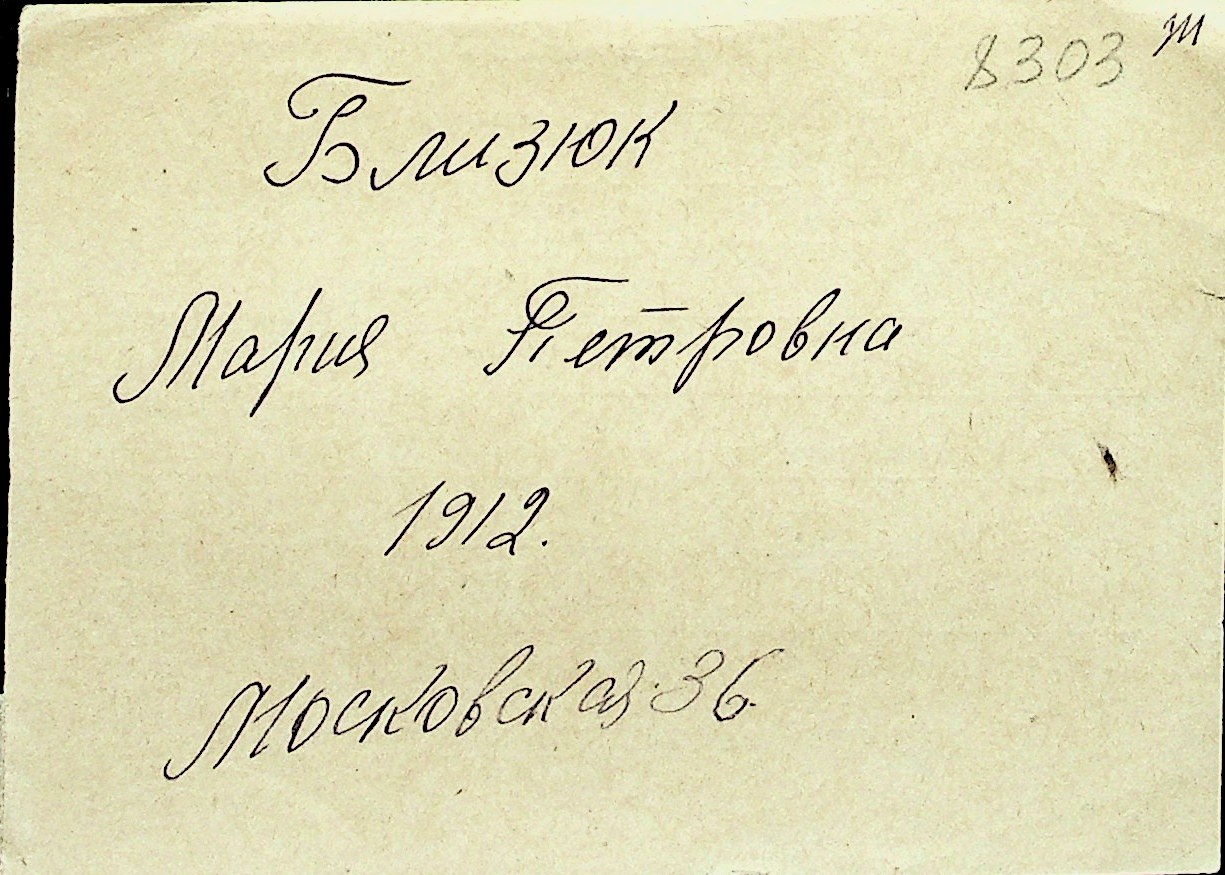 8303
Близюк
Мария Петровна
1912.
Московская 36.